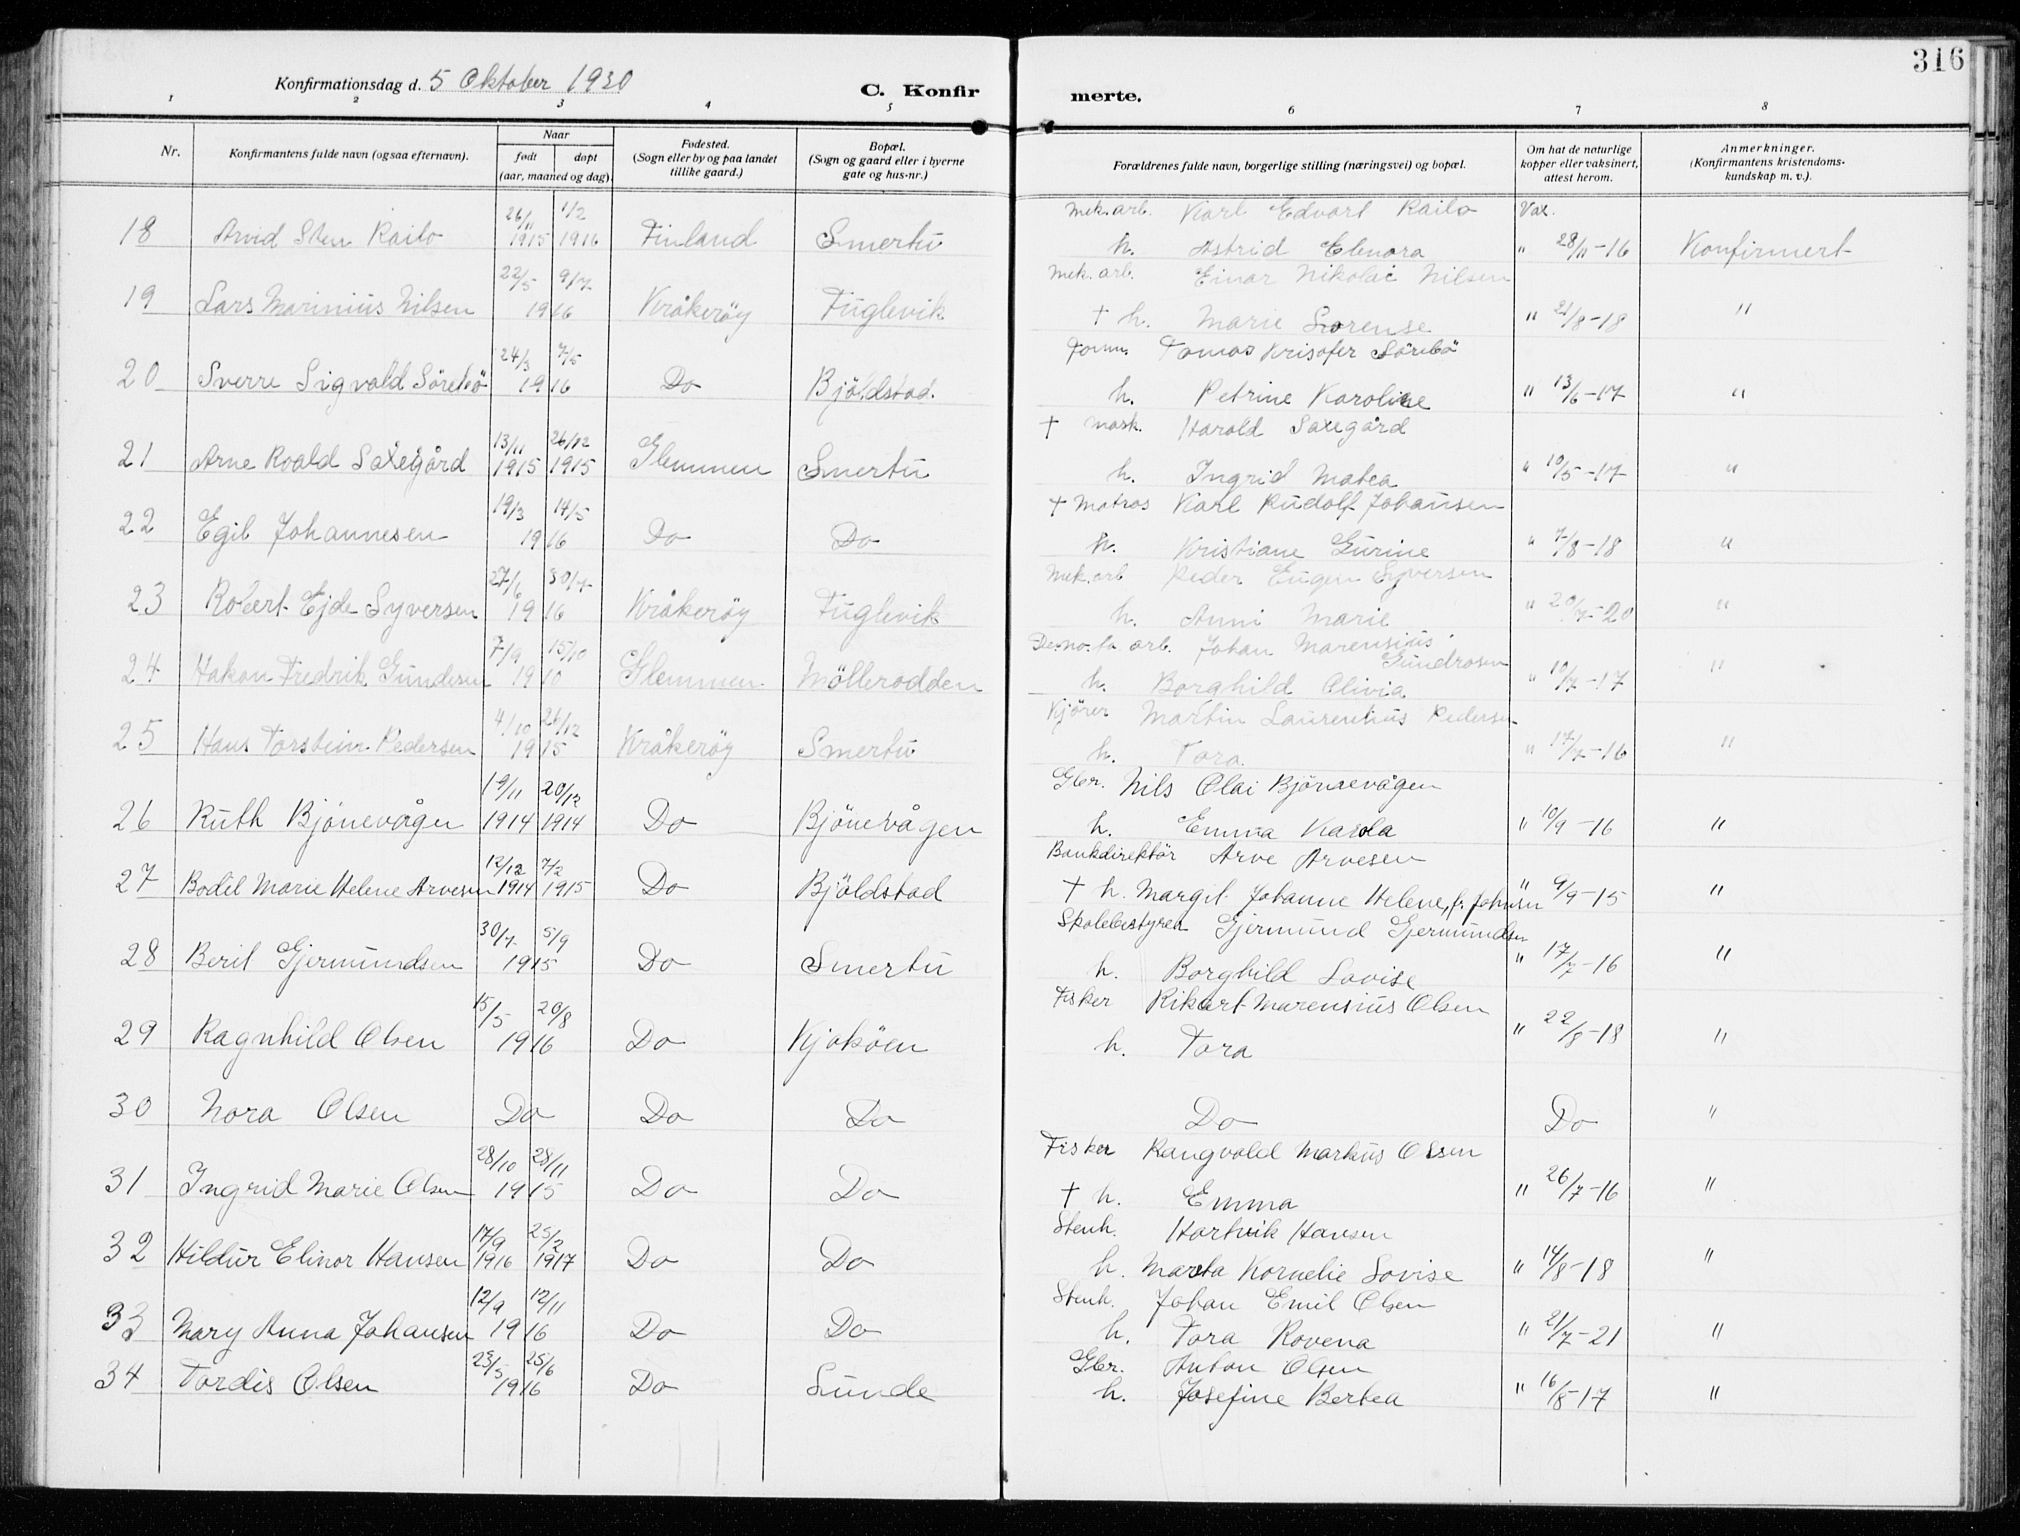 316
Konfirmationsdag d. 5 Oktober 1930
C. Konfirmerte.
1 2 3 4 5 6 7 8
Nr. Konfirmantens fulde navn (ogsaa efternavn). Naar født døpt (aar, maaned og dag). Fødested. (Sogn eller by og paa landet tillike gaard.) Bopæl. (Sogn og gaard eller i byerne gate og hus-nr.) Forældrenes fulde navn, borgerlige stilling (næringsvei) og bopæl. Om hat de naturlige kopper eller vaksinert, attest herom. Anmerkninger. (Konfirmantens kristendomskundskap m. v.).
26/11 1/2 Mek. arb. Karl Edvart Railo Vax.
18 Arvid Sten Railo 1915 1916 Finland Smertu h. Astrid Elenora " 28/11-16 Konfirmert
22/5 9/7 Mek. arb. Einar Nikolai Nilsen
19 Lars Marinius Nilsen 1916 Kråkeröy Fuglevik † h. Marie Lorense " 21/8-18 "
24/3 7/5 Tomm. Tomas Krisofer Sörebö
20 Sverre Sigvald Sörebö 1916 Do Bjöldstad. h. Petrine Karoline " 13/6-17 "
13/11 26/12 † Mask. Harald Saxegård
21 Arne Roald Saxegård 1915 1915 Glemmen Smertu h. Ingrid Matea " 10/5-17 "
19/3 14/5 † Matros Karl Rudolf Johansen
22 Egil Johannesen 1916 Do Do h. Kristiane Gurine " 7/8-18 "
27/6 30/7 Mek. arb Peder Eugen Syversen
23 Robert Ejde Syversen 1916 Kråkeröy Fuglevik h. Anni Marie " 20/7-20 "
7/9 15/10 De-no-fa arb. Johan Marensius Gundrosen
24 Hakon Fredrik Gundesen 1910 Glemmen Möllerodden h. Borghild Olivia " 10/7-17 "
4/10 26/12 Kjörer Martin Laurentius Pedersen
25 Hans Torstein Pedersen 1915 Kråkeröy Smertu h. Tora " 17/7-16 "
19/11 20/12 Gbr. Nils Olai Bjönnevågen
26 Ruth Bjönevågen 1914 1914 Do Bjönevågen h. Emma Karla " 10/9-16 "
12/12 7/2 Bankdirektör Arve Arvesen
27 Bodil Marie Helene Arvesen 1914 1915 Do Bjöldstad † h. Margit Johanne Helene, f. Johnsen " 9/9-15 "
30/7 5/9 Skolebestyrer Gjermund Gjermundsen
28 Berit Gjermundsen 1915 Do Smertu h. Borghild Lovise " 17/7-16 "
15/5 20/8 Fisker Rikart Marensius Olsen
29 Ragnhild Olsen 1916 Do Kjököen h. Tora " 22/8-18 "
30 Nora Olsen Do Do Do Do Do "
28/10 28/11 Fisker Rangvald Markus Olsen
31 Ingrid Marie Olsen 1915 Do Do † h. Emma " 26/7-16 "
17/9 25/2 Stenh. Hartvik Hansen
32 Hildur Elinor Hansen 1916 1917 Do Do h. Marta Kornelie Lovise " 14/8-18 "
12/9 12/11 Stenh. Johan Emil Olsen
33 Mary Anna Johansen 1916 Do Do h. Tora Rovena " 21/7-21 "
23/5 25/6 Gbr. Anton Olsen
34 Tordis Olsen 1916 Do Lunde h. Josefine Bertea " 16/8-17 "